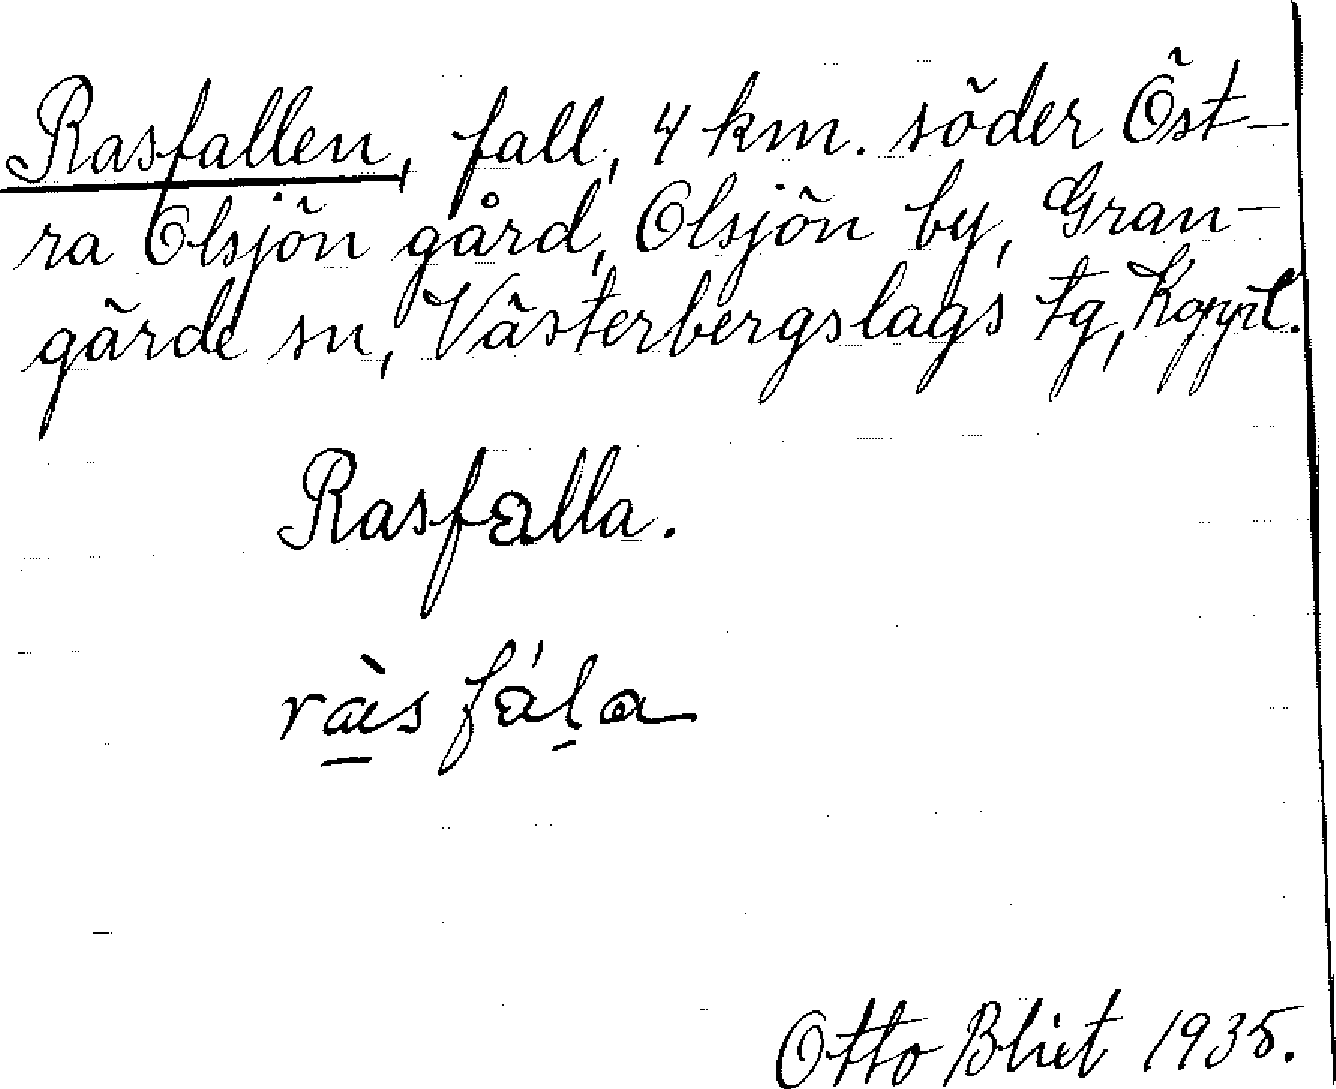 Rasfallen, fall, 4 km. söder Öst-
ra Olsjön gård, Olsjön by, Gran-
gärde sn, Västerbergslags tg, Kopp.l.
Rasfalla.
ràs fála
Otto Blixt 1935.